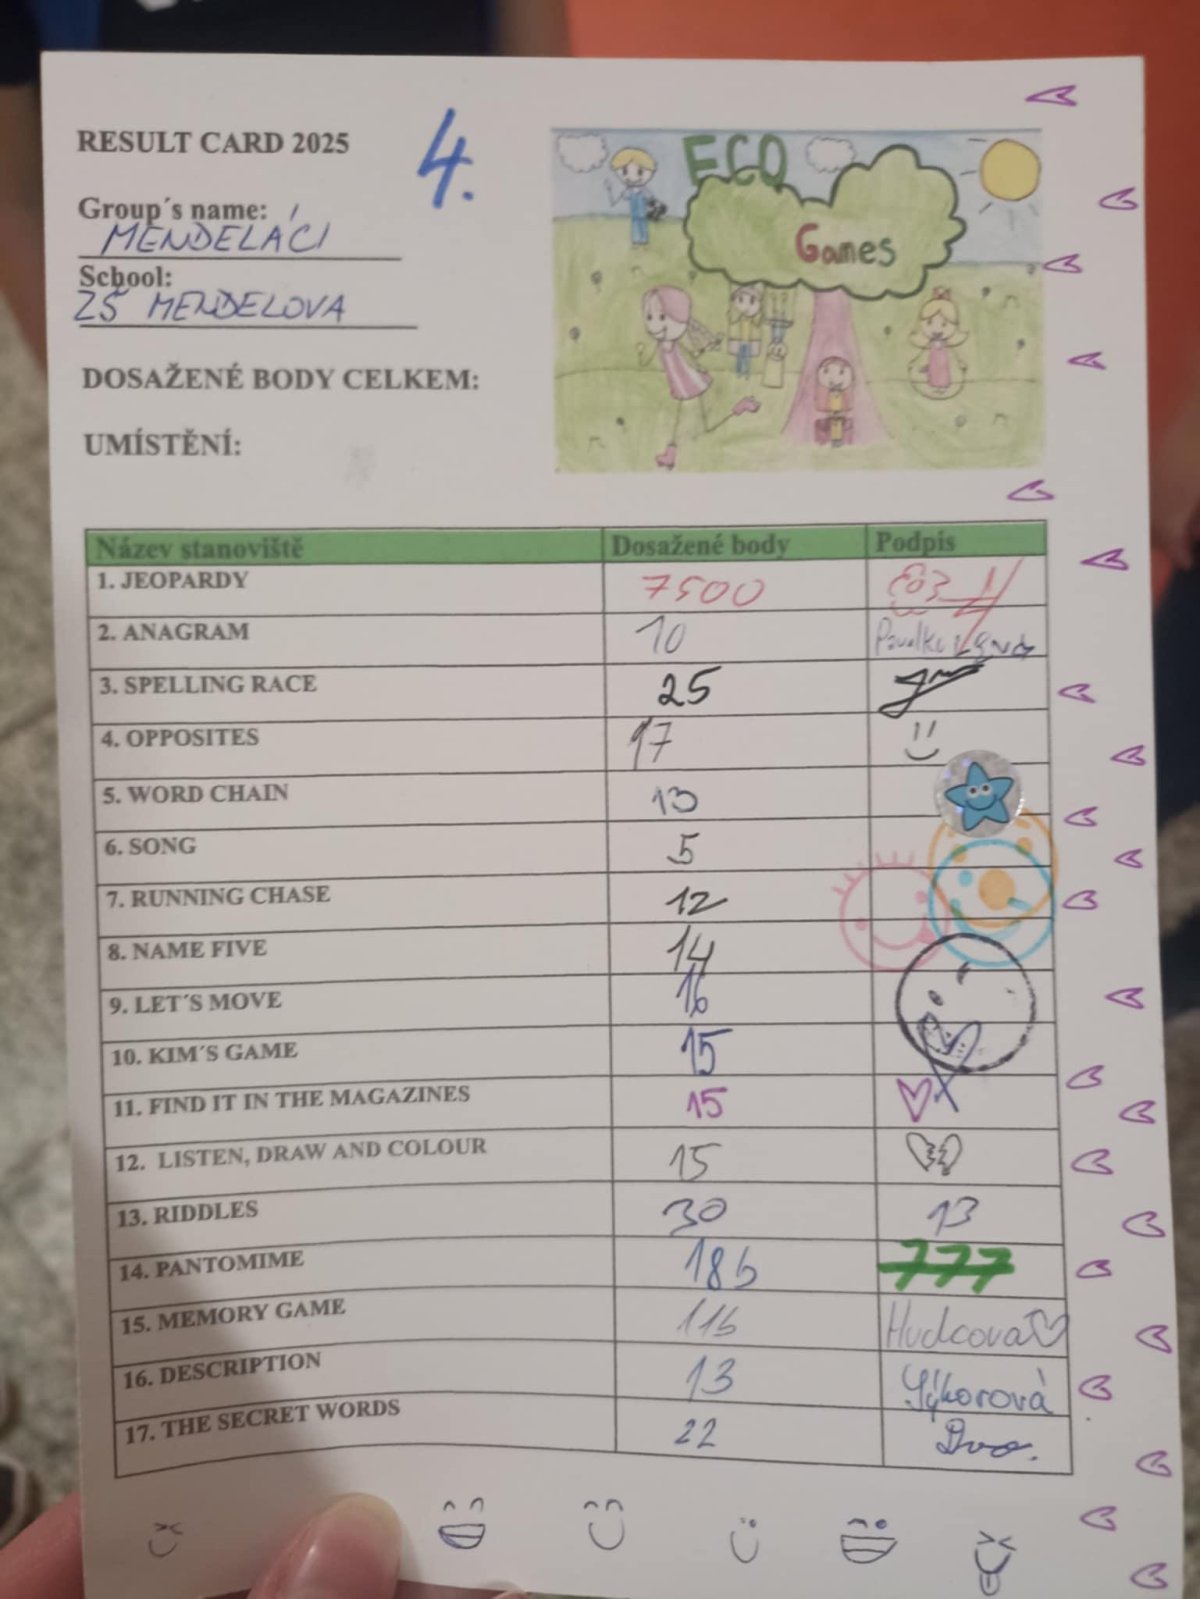 RESULT CARD 2025
4.
ECO
Games
Group´s name:
MENDELÁCI
School:
ZŠ MENDELOVA
DOSAŽENÉ BODY CELKEM:
UMÍSTĚNÍ:
Název stanoviště Dosažené body Podpis
1. JEOPARDY 7500
2. ANAGRAM 10
3. SPELLING RACE 25
4. OPPOSITES 17
5. WORD CHAIN 13
6. SONG 5
7. RUNNING CHASE 12
8. NAME FIVE 14
9. LET´S MOVE 16
10. KIM´S GAME 15
11. FIND IT IN THE MAGAZINES 15
12. LISTEN, DRAW AND COLOUR 15
13. RIDDLES 30 13
14. PANTOMIME 18b 777
15. MEMORY GAME 11b Hudcova
16. DESCRIPTION 13 Sýkorová
17. THE SECRET WORDS 22 Dvo.